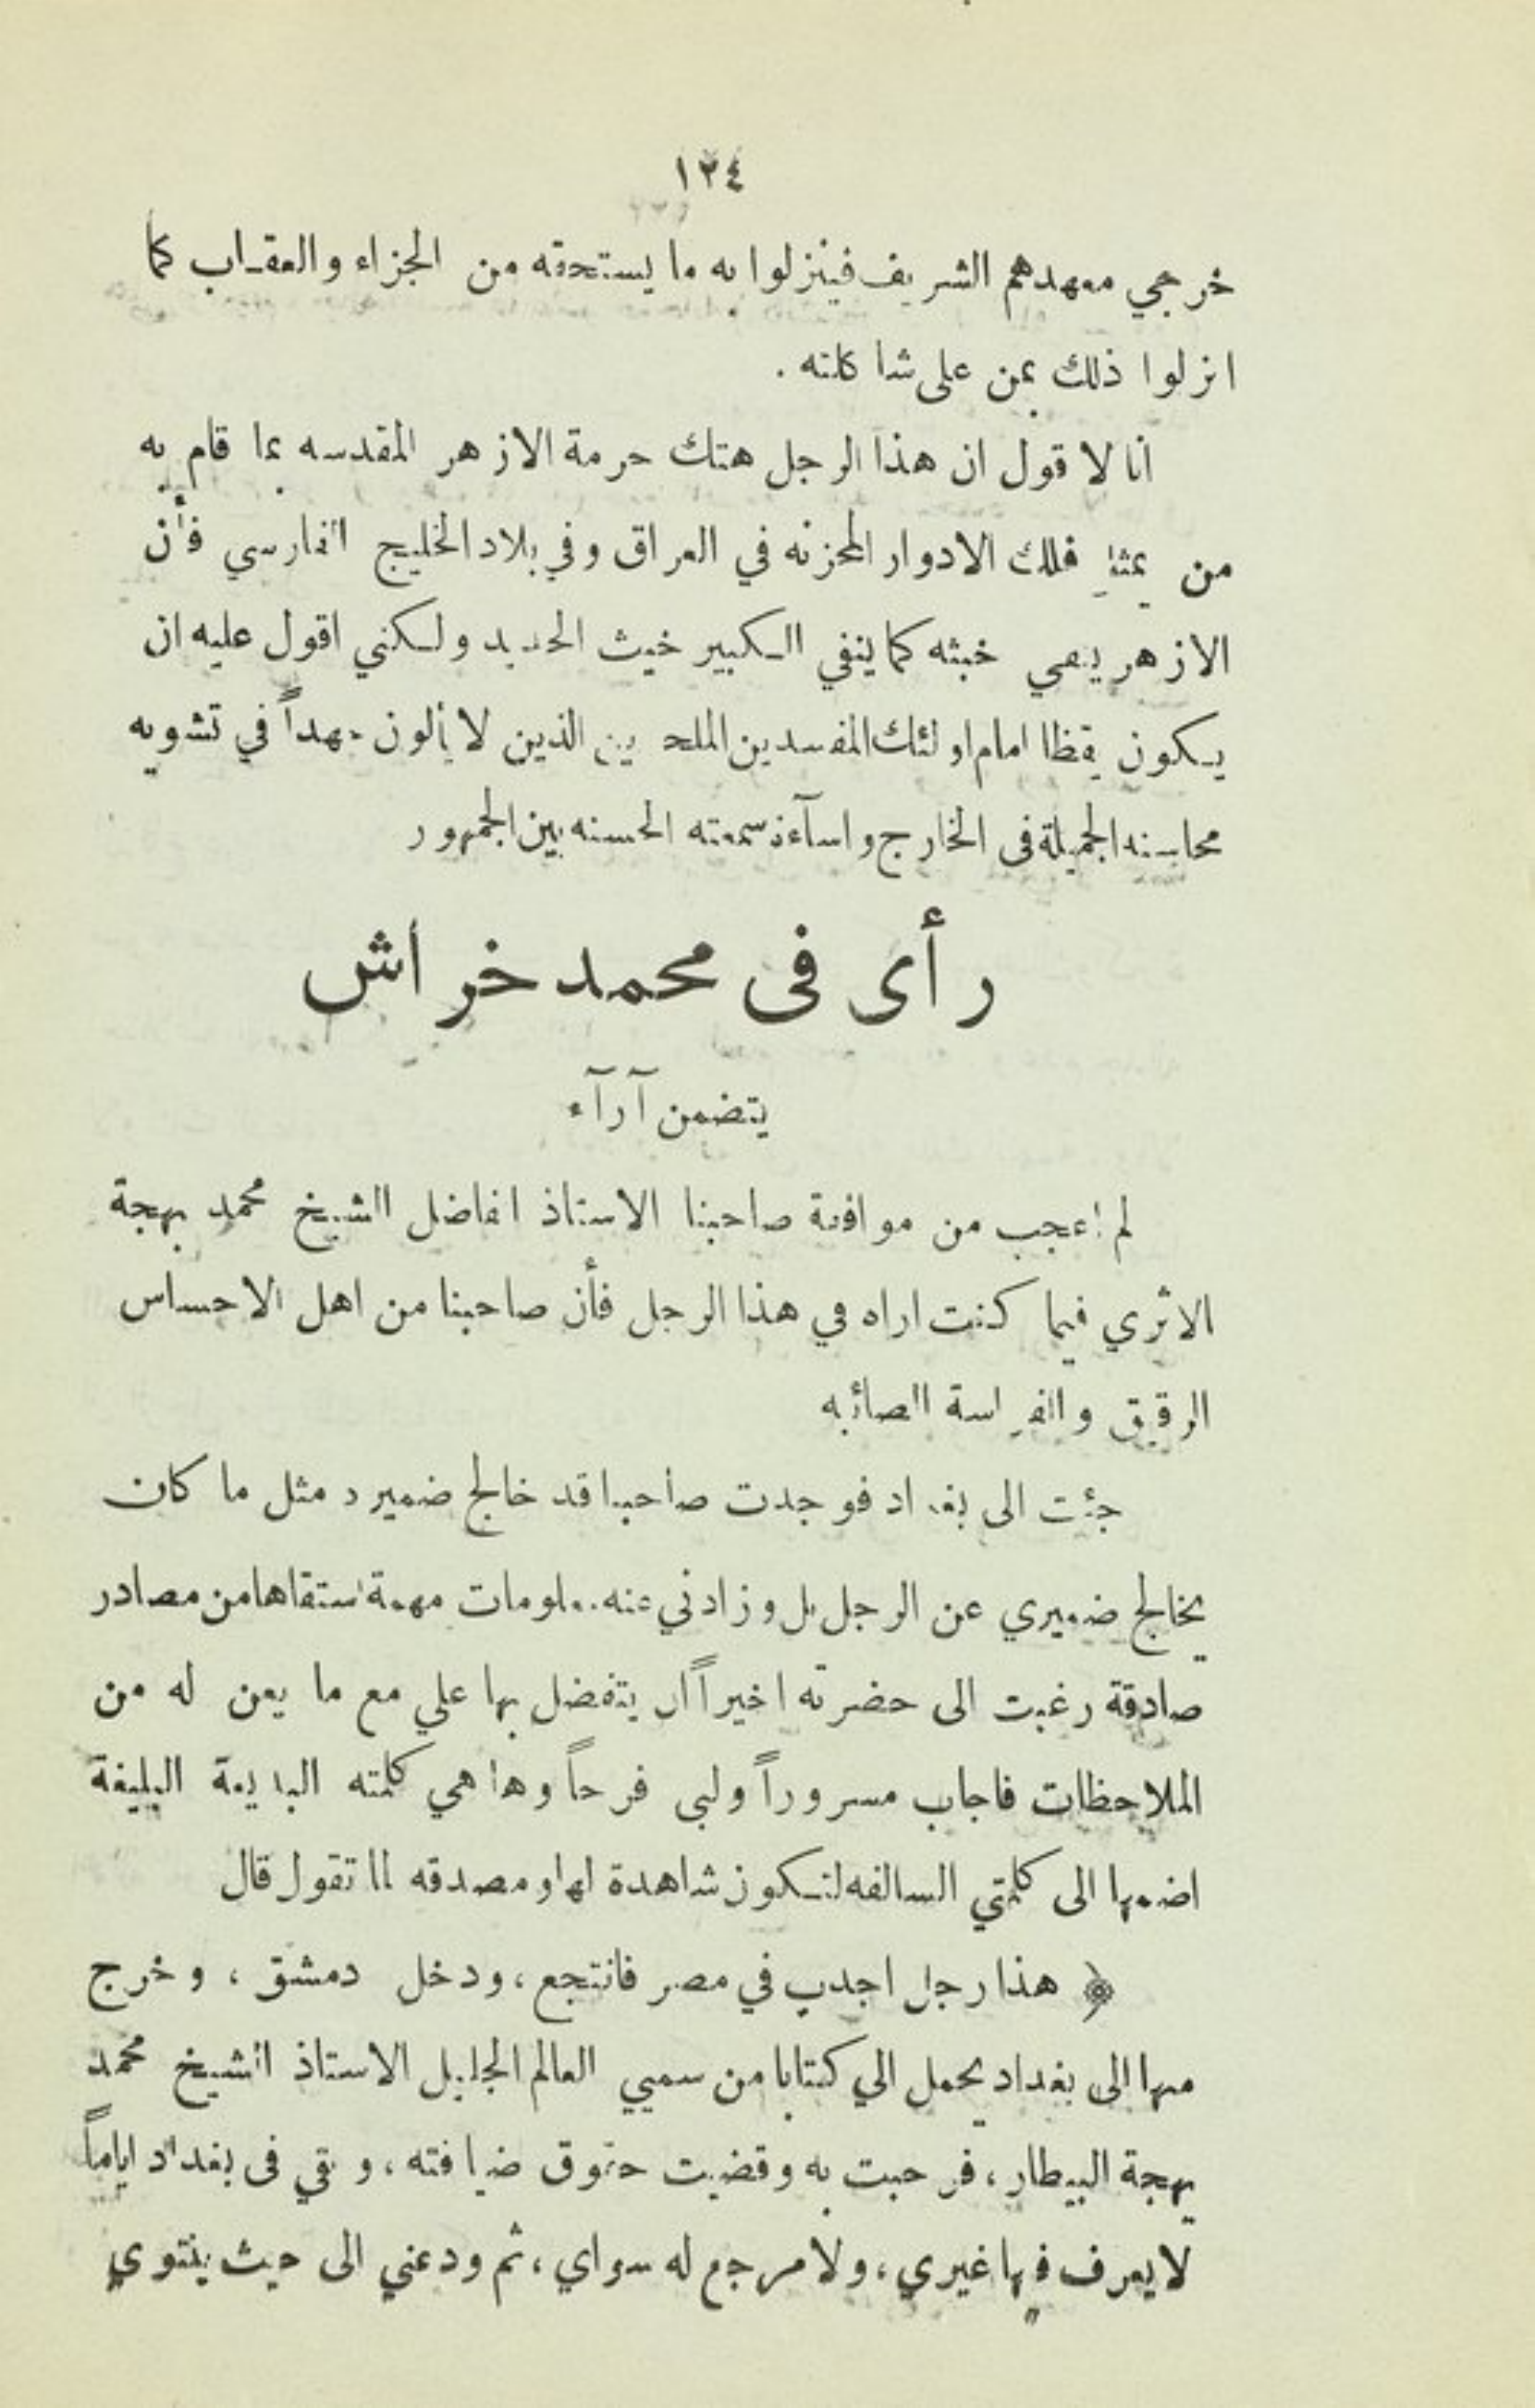 ١٢٤
خرجي معهدهم الشريف فينزلوا به ما يستحقه من الجزاء والعقاب كما
انزلوا ذلك بمن على شاكلته .
انا لا قول ان هذا الرجل هتك حرمة الازهر المقدسه بما قام به
من تمثيل الادوار المحزنه في العراق وفي بلاد الخليج الفارسي فأن
الازهر ينفي خبثه كما ينفي الكير خبث الحديد ولكني اقول عليه ان
يكون يقظا امام اولئك المفسدين الملحدين الذين لا يألون جهداً في تشويه
محاسنه الجميلة فى الخارج واسآءة سمعته الحسنه بين الجمهور
رأى فى محمد خراش
يتضمن آرآء
لم اعجب من موافقة صاحبنا الاستاذ الفاضل الشيخ محمد بهجة
الاثري فيما كنت اراه في هذا الرجل فأن صاحبنا من اهل الاحساس
الرقيق والفراسة الصائبه
جئت الى بغداد فوجدت صاحبنا قد خالج ضميره مثل ما كان
يخالج ضميري عن الرجل بل وزادني عنه معلومات مهمة استقاها من مصادر
صادقة رغبت الى حضرته اخيراً ان يتفضل بها علي مع ما يعن له من
الملاحظات فاجاب مسروراً ولبى فرحاً وها هي كلمته البديعة البليغة
اضمها الى كلمتي السالفه لتكون شاهدة لها ومصدقه لما تقول قال
﴿ هذا رجل اجدب في مصر فانتجع ، ودخل دمشق ، وخرج
منها الى بغداد يحمل الي كتابا من سميي العالم الجليل الاستاذ الشيخ محمد
بهجة البيطار ، فرحبت به وقضيت حقوق ضيافته ، وبقي فى بغداد اياماً
لا يعرف فيها غيري ، ولا مرجع له سواي ، ثم ودعني الى حيث ينتوي